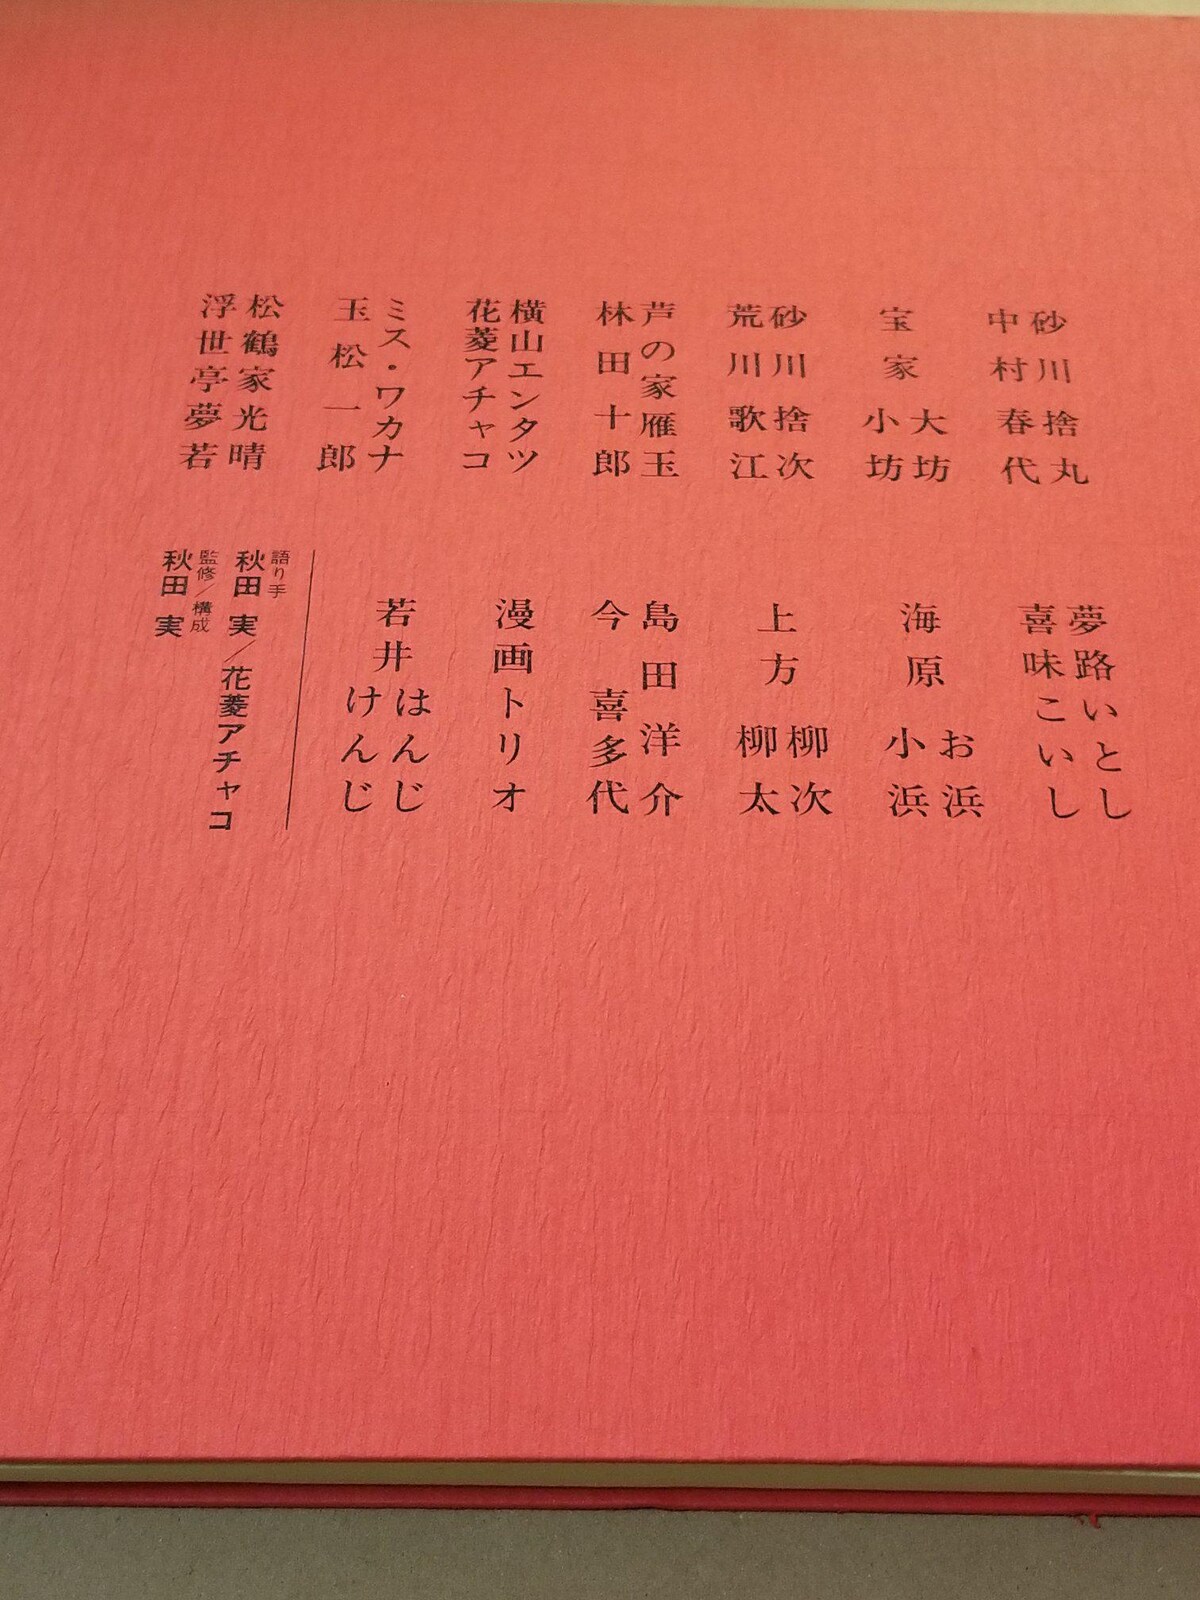 砂川捨丸
中村春代
宝家大坊
小坊
砂川捨次
荒川歌江
芦の家雁玉
林田十郎
横山エンタツ
花菱アチャコ
ミス・ワカナ
玉松一郎
松鶴家光晴
浮世亭夢若
夢路いとし
喜味こいし
海原お浜
小浜
上方柳次
柳太
島田洋介
今喜多代
漫画トリオ
若井はんじ
けんじ
語り手
秋田実/花菱アチャコ
監修/構成
秋田実